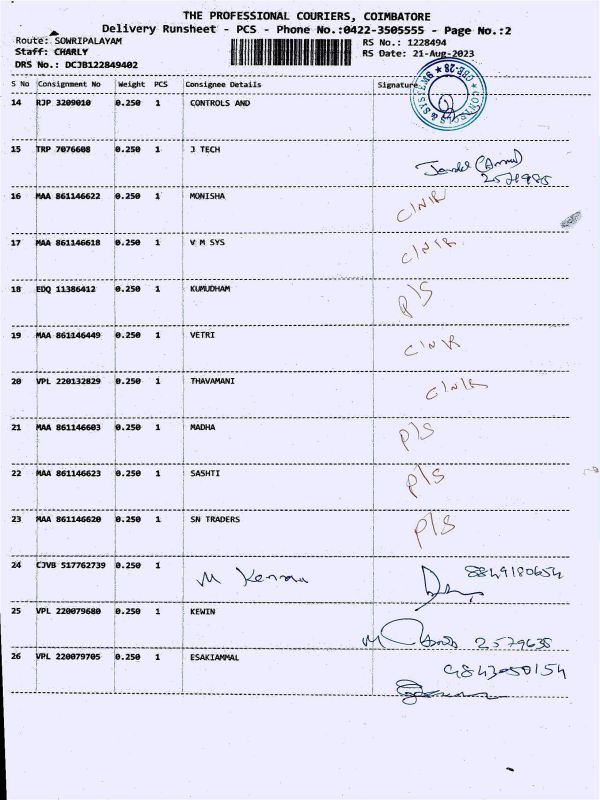 THE PROFESSIONAL COURIERS, COIMBATORE
Delivery Runsheet - PCS - Phone No.:0422-3505555 - Page No.:2
Route: SOWRIPALAYAM RS No.: 1228494
Staff: CHARLY RS Date: 21-Aug-2023
DRS No.: DCJB122849402
S No Consignment No Weight PCS Consignee Details Signature
14 RJP 3209010 0.250 1 CONTROLS AND
CONTROLS & SYSTEMS * CBE-28 *
15 TRP 7076608 0.250 1 J TECH
16 MAA 861146622 0.250 1 MONISHA C\N\R
17 MAA 861146618 0.250 1 V M SYS C\N\R
18 EDQ 11386412 0.250 1 KUMUDHAM P\S
19 MAA 861146449 0.250 1 VETRI C\N\R
20 VPL 220132829 0.250 1 THAVAMANI C\N\R
21 MAA 861146603 0.250 1 MADHA P\S
22 MAA 861146623 0.250 1 SASHTI P\S
23 MAA 861146620 0.250 1 SN TRADERS P\S
24 CJVB 517762739 0.250 1 M 8849180654
25 VPL 220079680 0.250 1 KEWIN 2579635
26 VPL 220079705 0.250 1 ESAKIAMMAL 9843050154